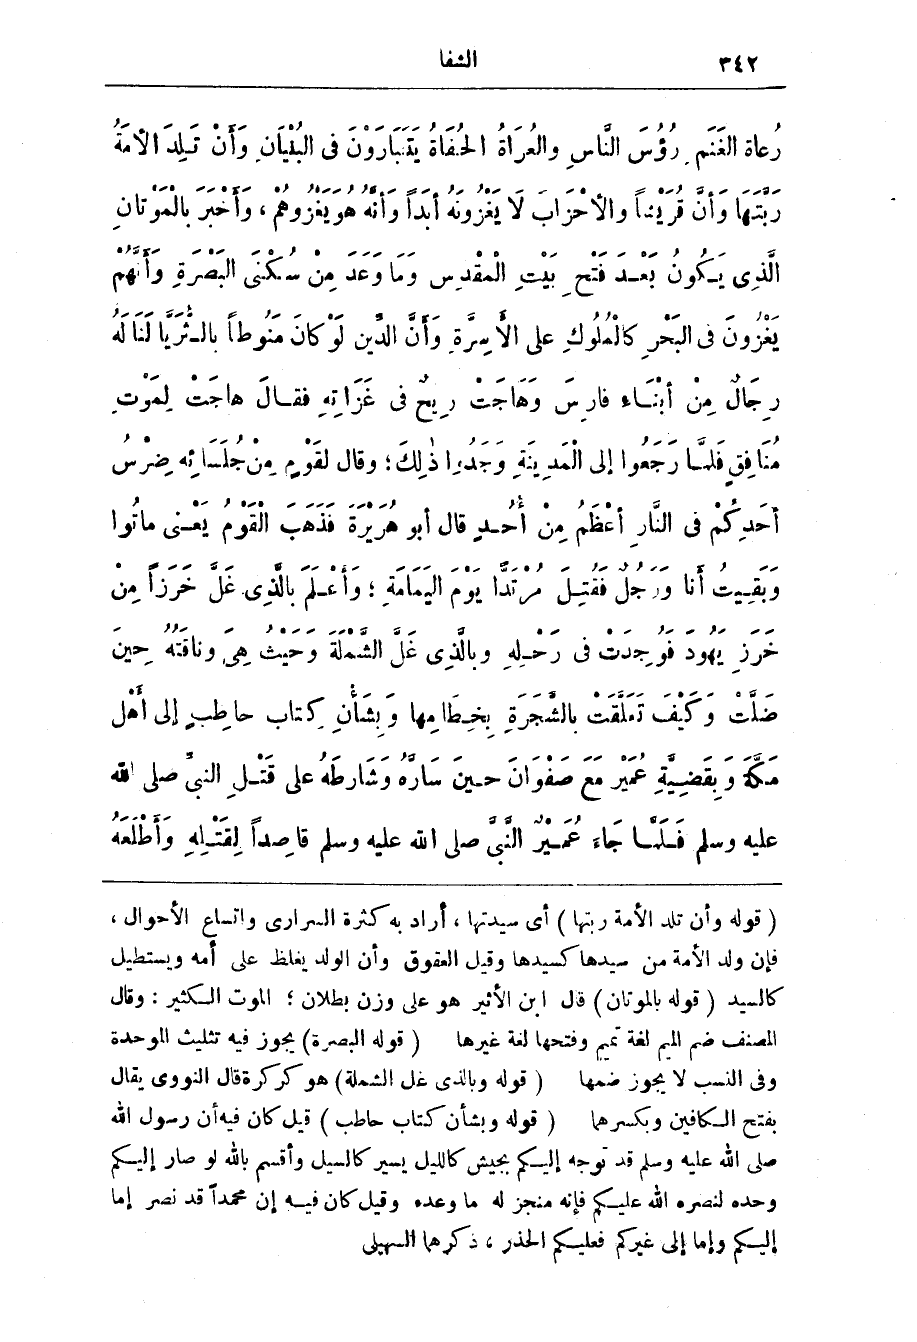 ٣٤٢
الشفا
رُعَاةَ الغَنَمِ رُؤُسَ النَّاسِ والعُرَاةُ الحُفَاةُ يَتَبَارَوْنَ فى البُنْيَانِ وَأَنْ تَلِدَ الأَمَةُ
رَبَّتَهَا وَأَنَّ قُرَيْشاً والأَحْزَابَ لَا يَغْزُونَهُ أَبَداً وَأَنَّهُ هُوَ يَغْزُوهُمْ ، وَأَخْبَرَ بِالْمُوْتَانِ
الَّذِى يَكُونُ بَعْدَ فَتْحِ بَيْتِ الْمَقْدِسِ وَمَا وَعَدَ مِنْ سُكْنَى البَصْرَةِ وَأَنَّهُمْ
يَغْزُونَ فى البَحْرِ كالْمُلُوكِ على الأَسِرَّةِ وَأَنَّ الدِّينَ لَوْ كانَ مَنُوطاً بالثُّرَيَّا لَنَالَهُ
رِجَالٌ مِنْ أَبْنَاءِ فارِسَ وَهَاجَتْ رِيحٌ فى غَزَاتِهِ فقالَ هاجَتْ لِمَوْتِ
مُنَافِقٍ فَلمَّا رَجَعُوا إلى الْمَدِينَةِ وَجَدُوا ذٰلِكَ ؛ وقال لقَوْمٍ مِنْ جُلَسَائِهِ ضِرْسُ
أَحَدِكُمْ فى النَّارِ أَعْظَمُ مِنْ أُحُدٍ قال أبو هُرَيْرَةَ فَذَهَبَ الْقَوْمُ يَعْنى ماتُوا
وَبَقِيتُ أَنا وَرَجُلٌ فَقُتِلَ مُرْتَدًّا يَوْمَ اليَمَامَةِ ؛ وَأَعْلَمَ بالَّذِى غَلَّ خَرَزاً مِنْ
خَرَزِ يَهُودَ فَوُجِدَتْ فى رَحْلِهِ وبالَّذِى غَلَّ الشَّمْلَةَ وَحَيْثُ هِىَ وناقَتُهُ حِينَ
ضَلَّتْ وَكَيْفَ تَعَلَّقَتْ بالشَّجَرَةِ بِخِطَامِها وَبِشَأْنِ كِتابِ حاطِبٍ إلى أَهْلِ
مَكَّةَ وَبِقَضِيَّةِ عُمَيْرٍ مَعَ صَفْوَانَ حينَ سارَّهُ وَشَارَطَهُ على قَتْلِ النبىِّ صلى الله
عليه وسلم فَلَمَّا جَاءَ عُمَيْرٌ النَّبِىَّ صلى الله عليه وسلم قاصِداً لِقَتْلِهِ وَأَطْلَعَهُ
( قوله وأن تلد الأمة ربتها ) أى سيدتها ، أراد به كثرة السرارى واتساع الأحوال ،
فإن ولد الأمة من سيدها كسيدها وقيل العقوق وأن الولد يغلظ على أمه ويستطيل
كالسيد ( قوله بالموتان ) قال ابن الأثير هو على وزن بطلان ؛ الموت الكثير : وقال
المصنف ضم الميم لغة تميم وفتحها لغة غيرها ( قوله البصرة ) يجوز فيه تثليث الموحدة
وفى النسب لا يجوز ضمها ( قوله وبالذى غل الشملة ) هو كركرة قال النووى يقال
بفتح الكافين وبكسرها ( قوله وبشأن كتاب حاطب ) قيل كان فيه أن رسول الله
صلى الله عليه وسلم قد توجه إليكم بجيش كالليل يسير كالسيل وأقسم بالله لو صار إليكم
وحده لنصره الله عليكم فإنه منجز له ما وعده وقيل كان فيه إن محمداً قد نصر إما
إليكم وإما إلى غيركم فعليكم الحذر ، ذكرهما السهيلى